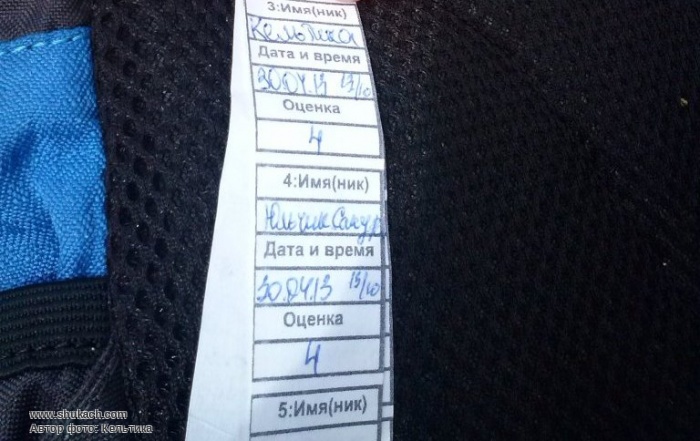 3:Имя(ник)
Кельтика
Дата и время
30.04.13 13/10
Оценка
4
4:Имя(ник)
Юльчик Сахур
Дата и время
30.04.13 13/10
Оценка
4
5:Имя(ник)
www.shukach.com
Автор фото: Кельтика